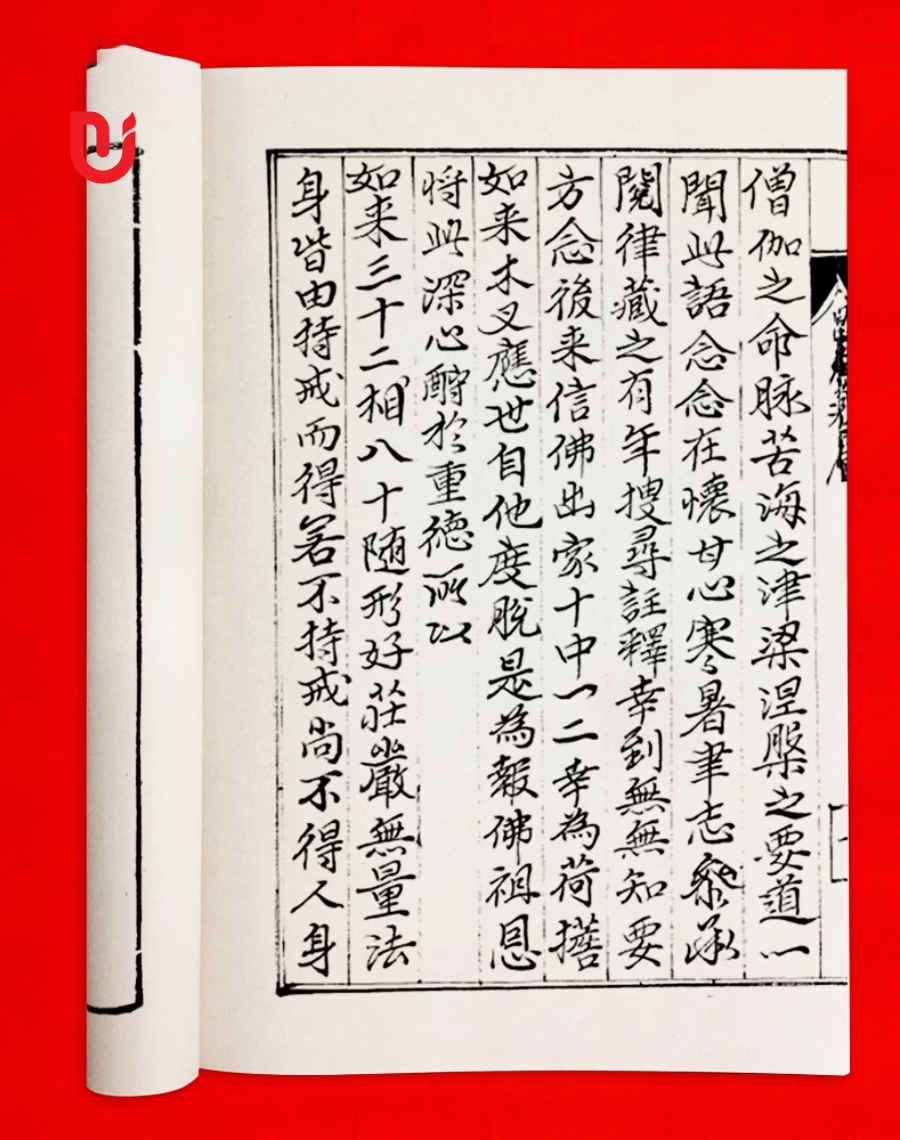 僧伽之命脉苦海之津梁涅槃之要道一
聞此語念念在懷甘心寒暑聿志叅承
閱律藏之有年搜尋註釋幸到無無知要
方念後来信佛出家十中一二幸為荷
如来木叉應世自他度脫是為報佛祖恩
将此深心酧於重德所以
如来三十二相八十随形好莊嚴無量法
身皆由持戒而得若不持戒尚不得人身